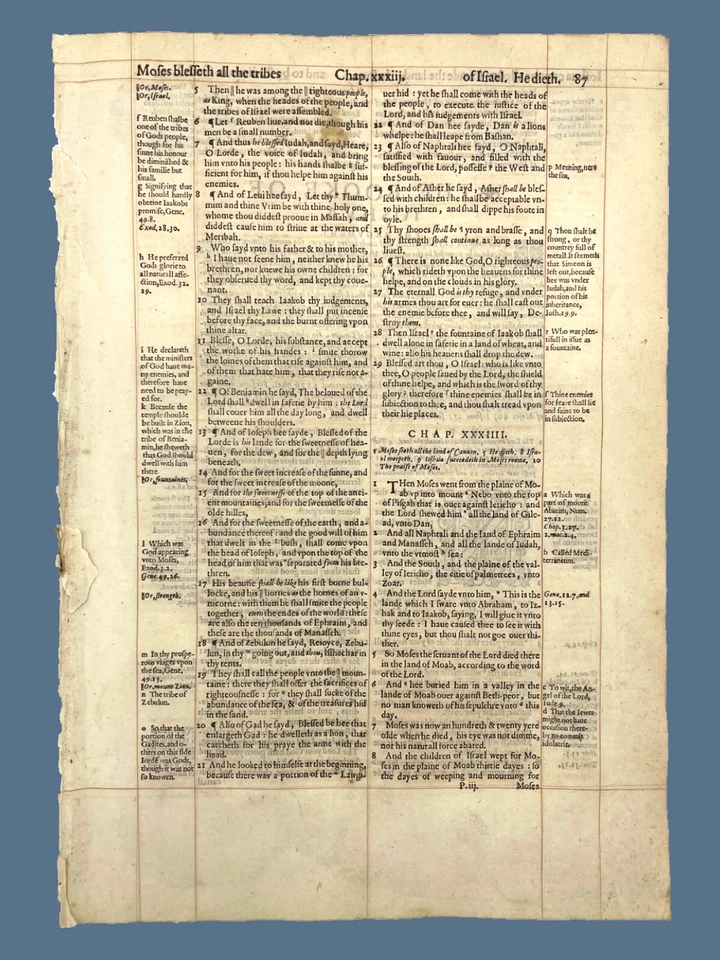 Moses blesseth all the tribes Chap. xxxiij. of Israel. He dieth. 87
‖Or, Moses.
‖Or, Israel.
f Reuben shalbe
one of the tribes
of Gods people,
though for his
sinne his honour
be diminished &
his familie but
small.
g Signifying that
he should hardly
obteine Iaakobs
promise, Gene.
49.8.
Exod. 28.30.
h He preferred
Gods glorie to
all naturall affe-
ction, Exod. 32.
29.
i He declareth
that the ministers
of God haue ma-
ny enemies, and
therefore haue
need to be pray-
ed for.
k Because the
temple shoulde
be built in Zion,
which was in the
tribe of Benia-
min, he sheweth
that God should
dwell with him
there.
‖Or, fountaine.
l Which was
God appearing
vnto Moses,
Exod. 3.2.
Gene. 49.26.
‖Or, strength.
m In thy prospe-
rous viages vpon
the sea, Gene.
49.13.
‖Or, mount Zion.
n The tribe of
Zebulun.
o So that the
portion of the
Gadites, and o-
thers on this side
Iorden was Gods,
though it was not
so knowen.
5 Then ‖ he was among the ‖ righteous people,
as King, when the heades of the people, and
the tribes of Israel were assembled.
6 ¶ Let f Reuben liue, and not die, though his
men be a small number.
7 ¶ And thus he blessed Iudah, and sayd, Heare,
O Lorde, the voice of Iudah, and bring
him vnto his people: his hands shalbe g suf-
ficient for him, if thou helpe him against his
enemies.
8 ¶ And of Leui hee sayd, Let thy * Thum-
mim and thine Vrim be with thine holy one,
whome thou diddest prooue in Massah, and
diddest cause him to striue at the waters of
Meribah.
9 Who sayd vnto his father & to his mother,
h I haue not seene him, neither knew he his
brethren, nor knewe his owne children: for
they obserued thy word, and kept thy coue-
nant.
10 They shall teach Iaakob thy iudgements,
and Israel thy Lawe: they shall put incense
before thy face, and the burnt offering vpon
thine altar.
11 Blesse, O Lorde, his substance, and accept
the worke of his handes: i smite thorow
the loines of them that rise against him, and
of them that hate him, that they rise not a-
gaine.
12 ¶ Of Beniamin he sayd, The beloued of the
Lord shall k dwell in safetie by him: the Lord
shall couer him all the day long, and dwell
betweene his shoulders.
13 ¶ And of Ioseph hee sayde, Blessed of the
Lorde is his lande for the sweetnesse of hea-
uen, for the dew, and for the ‖ depth lying
beneath,
14 And for the sweet increase of the sunne, and
for the sweet increase of the moone,
15 And for the sweetnesse of the top of the anci-
ent mountaines, and for the sweetnesse of the
olde hilles,
16 And for the sweetnesse of the earth, and a-
bundance thereof: and the good will of him
that dwelt in the l bush, shall come vpon
the head of Ioseph, and vpon the top of the
head of him that was * separated from his bre-
thren.
17 His beautie shall be like his first borne bul-
locke, and his ‖ hornes as the hornes of an v-
nicorne: with them he shall smite the people
together, euen the endes of the world: these
are also the ten thousands of Ephraim, and
these are the thousands of Manasseh.
18 ¶ And of Zebulun he sayd, Reioyce, Zebu-
lun, in thy m going out, and thou, Isshachar in
thy tents.
19 They shall call the people vnto the ‖ moun-
taine: there they shall offer the sacrifices of
righteousnesse: for n they shall sucke of the
abundance of the sea, & of the treasures hid
in the sand.
20 ¶ Also of Gad he sayd, Blessed be hee that
enlargeth Gad: he dwelleth as a lion, that
catcheth for his praye the arme with the
head.
21 And he looked to himselfe at the beginning,
because there was a portion of the o Lawgi-
uer hid: yet he shall come with the heads of
the people, to execute the iustice of the
Lord, and his iudgements with Israel.
22 ¶ And of Dan hee sayde, Dan is a lions
whelpe: he shall leape from Bashan.
23 ¶ Also of Naphtali hee sayd, O Naphtali,
satisfied with fauour, and filled with the
blessing of the Lord, possesse p the West and
the South.
24 ¶ And of Asher he sayd, Asher shall be bles-
sed with children: he shalbe acceptable vn-
to his brethren, and shall dippe his foote in
oyle.
25 Thy shooes shall be q yron and brasse, and
thy strength shall continue as long as thou
liuest.
26 ¶ There is none like God, O righteous peo-
ple, which rideth vpon the heauens for thine
helpe, and on the clouds in his glory.
27 The eternall God is thy refuge, and vnder
his armes thou art for euer: he shall cast out
the enemie before thee, and will say, De-
stroy them.
28 Then Israel r the fountaine of Iaakob shall
dwell alone in safetie in a land of wheat, and
wine: also his heauens shall drop the dew.
29 Blessed art thou, O Israel: who is like vnto
thee, O people saued by the Lord, the shield
of thine helpe, and which is the sword of thy
glory? therefore f thine enemies shall be in
subiection to thee, and thou shalt tread vpon
their hie places.
CHAP. XXXIIII.
1 Moses seeth all the land of Canaan. 5 He dieth. 8 Isra-
el weepeth. 9 Ioshua succeedeth in Moses roome. 10
The praise of Moses.
1 Then Moses went from the plaine of Mo-
ab vp into mount a Nebo vnto the top
of Pisgah that is ouer against Iericho: and
the Lord shewed him * all the land of Gile-
ad, vnto Dan,
2 And all Naphtali and the land of Ephraim
and Manasseh, and all the lande of Iudah,
vnto the vtmost b sea:
3 And the South, and the plaine of the val-
ley of Iericho, the citie of palmetrees, vnto
Zoar.
4 And the Lord sayde vnto him, * This is the
lande which I sware vnto Abraham, to Iz-
hak and to Iaakob, saying, I will giue it vnto
thy seede: I haue caused thee to see it with
thine eyes, but thou shalt not goe ouer thi-
ther.
5 So Moses the seruant of the Lord died there
in the land of Moab, according to the word
of the Lord.
6 And c hee buried him in a valley in the
lande of Moab ouer against Beth-peor, but
no man knoweth of his sepulchre vnto d this
day.
7 Moses was now an hundreth & twenty yere
olde when he died, his eye was not dimme,
nor his naturall force abated.
8 And the children of Israel wept for Mo-
ses in the plaine of Moab thirtie dayes: so
the dayes of weeping and mourning for
P.iij. Moses
p Meaning, nere
the sea.
q Thou shalt be
strong, or thy
countrey full of
metall. It seemeth
that Simeon is
left out, because
hee was vnder
Iudah, and his
portion of his
inheritance,
Iosh. 19.9.
r Who was plen-
tifull in issue as
a fountaine.
f Thine enemies
for feare shall lie
and faine to be
in subiection.
a Which was a
part of mount
Abarim, Num.
27.12.
Chap. 3.27.
2.macc. 2.4.
b Called Medi-
terraneum.
Gene. 12.7, and
13.15.
c To wit, the An-
gel of the Lord,
Iude 9.
d That the Iewes
might not haue
occasion there-
by to commit
idolatrie.